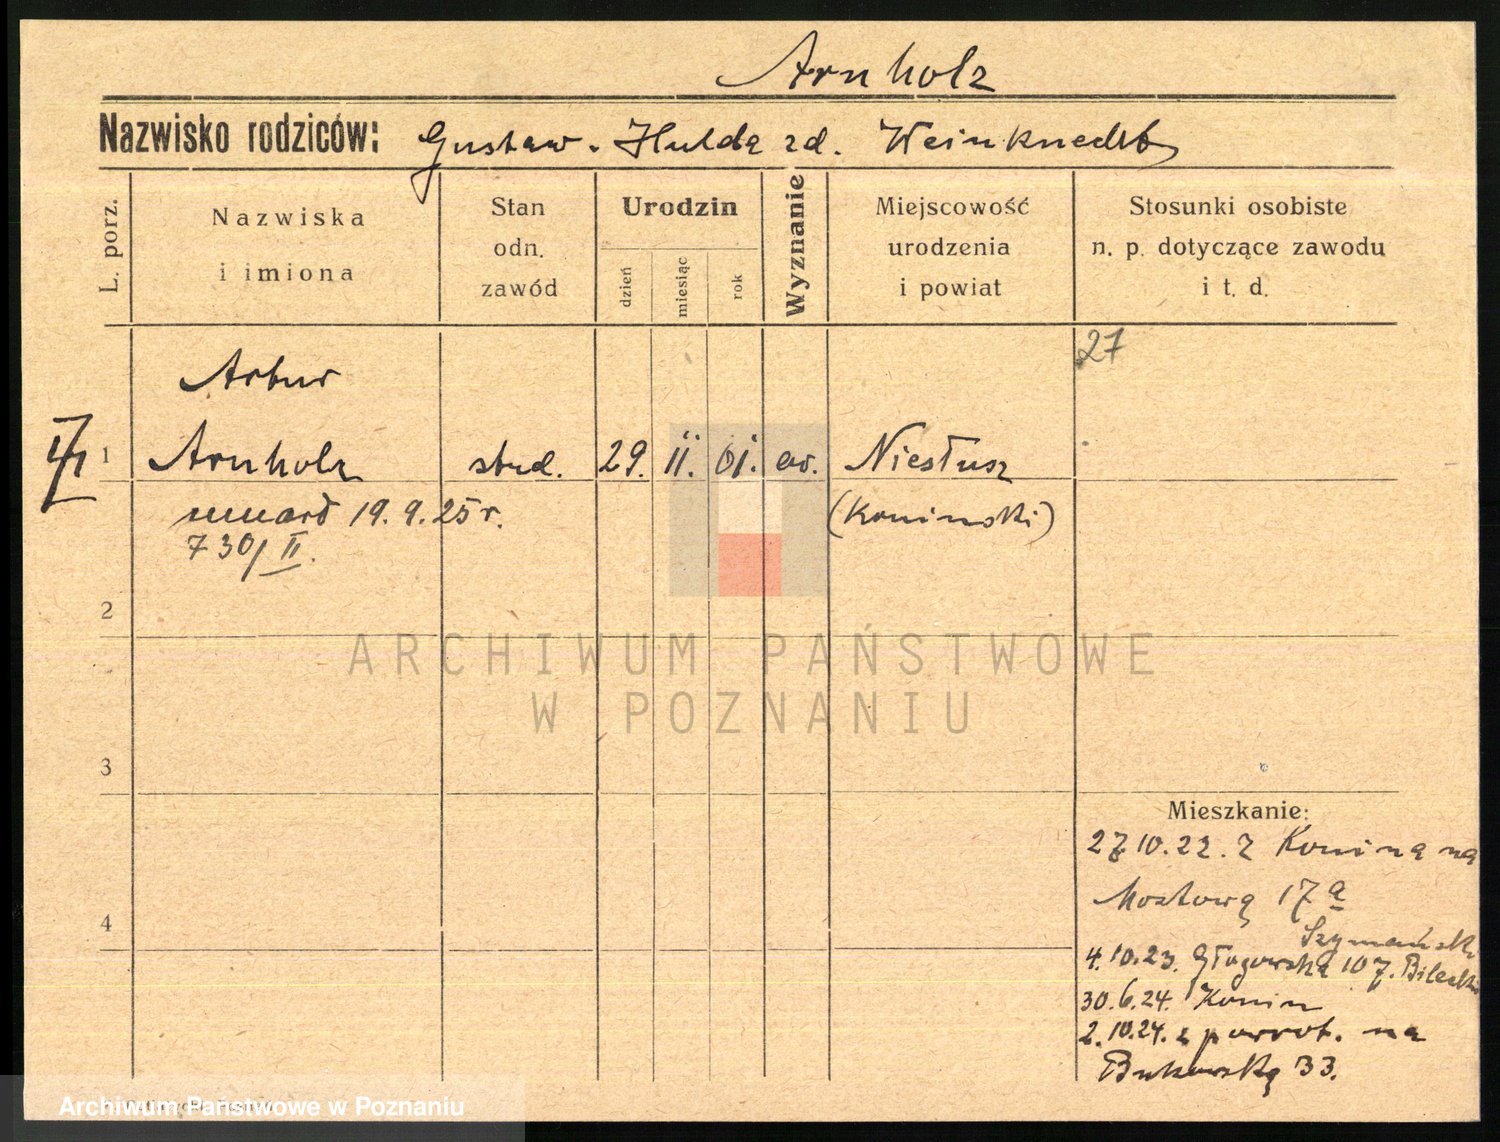 Arnholz
Nazwisko rodziców: Gustaw. Hulda zd. Weinknecht
L. porz.
Nazwiska
i imiona
Stan
odn.
zawód
Urodzin
dzień
miesiąc
rok
Wyznanie
Miejscowość
urodzenia
i powiat
Stosunki osobiste
n. p. dotyczące zawodu
i t. d.
27
Artur
1 Arnholz stud. 29. II. 01. ew. Niesłusz
umarł 19. 9. 25 r. (Koninski)
730/II.
2
ARCHIWUM PAŃSTWOWE
W POZNANIU
3
Mieszkanie:
27 10. 22. z Konina na
Mostową 17 a
4
Szymański
4. 10. 23. Głogowska 107.
30. 6. 24. Konin
2. 10. 24. z powrot. na
Bukowską 33.
Archiwum Państwowe w Poznaniu